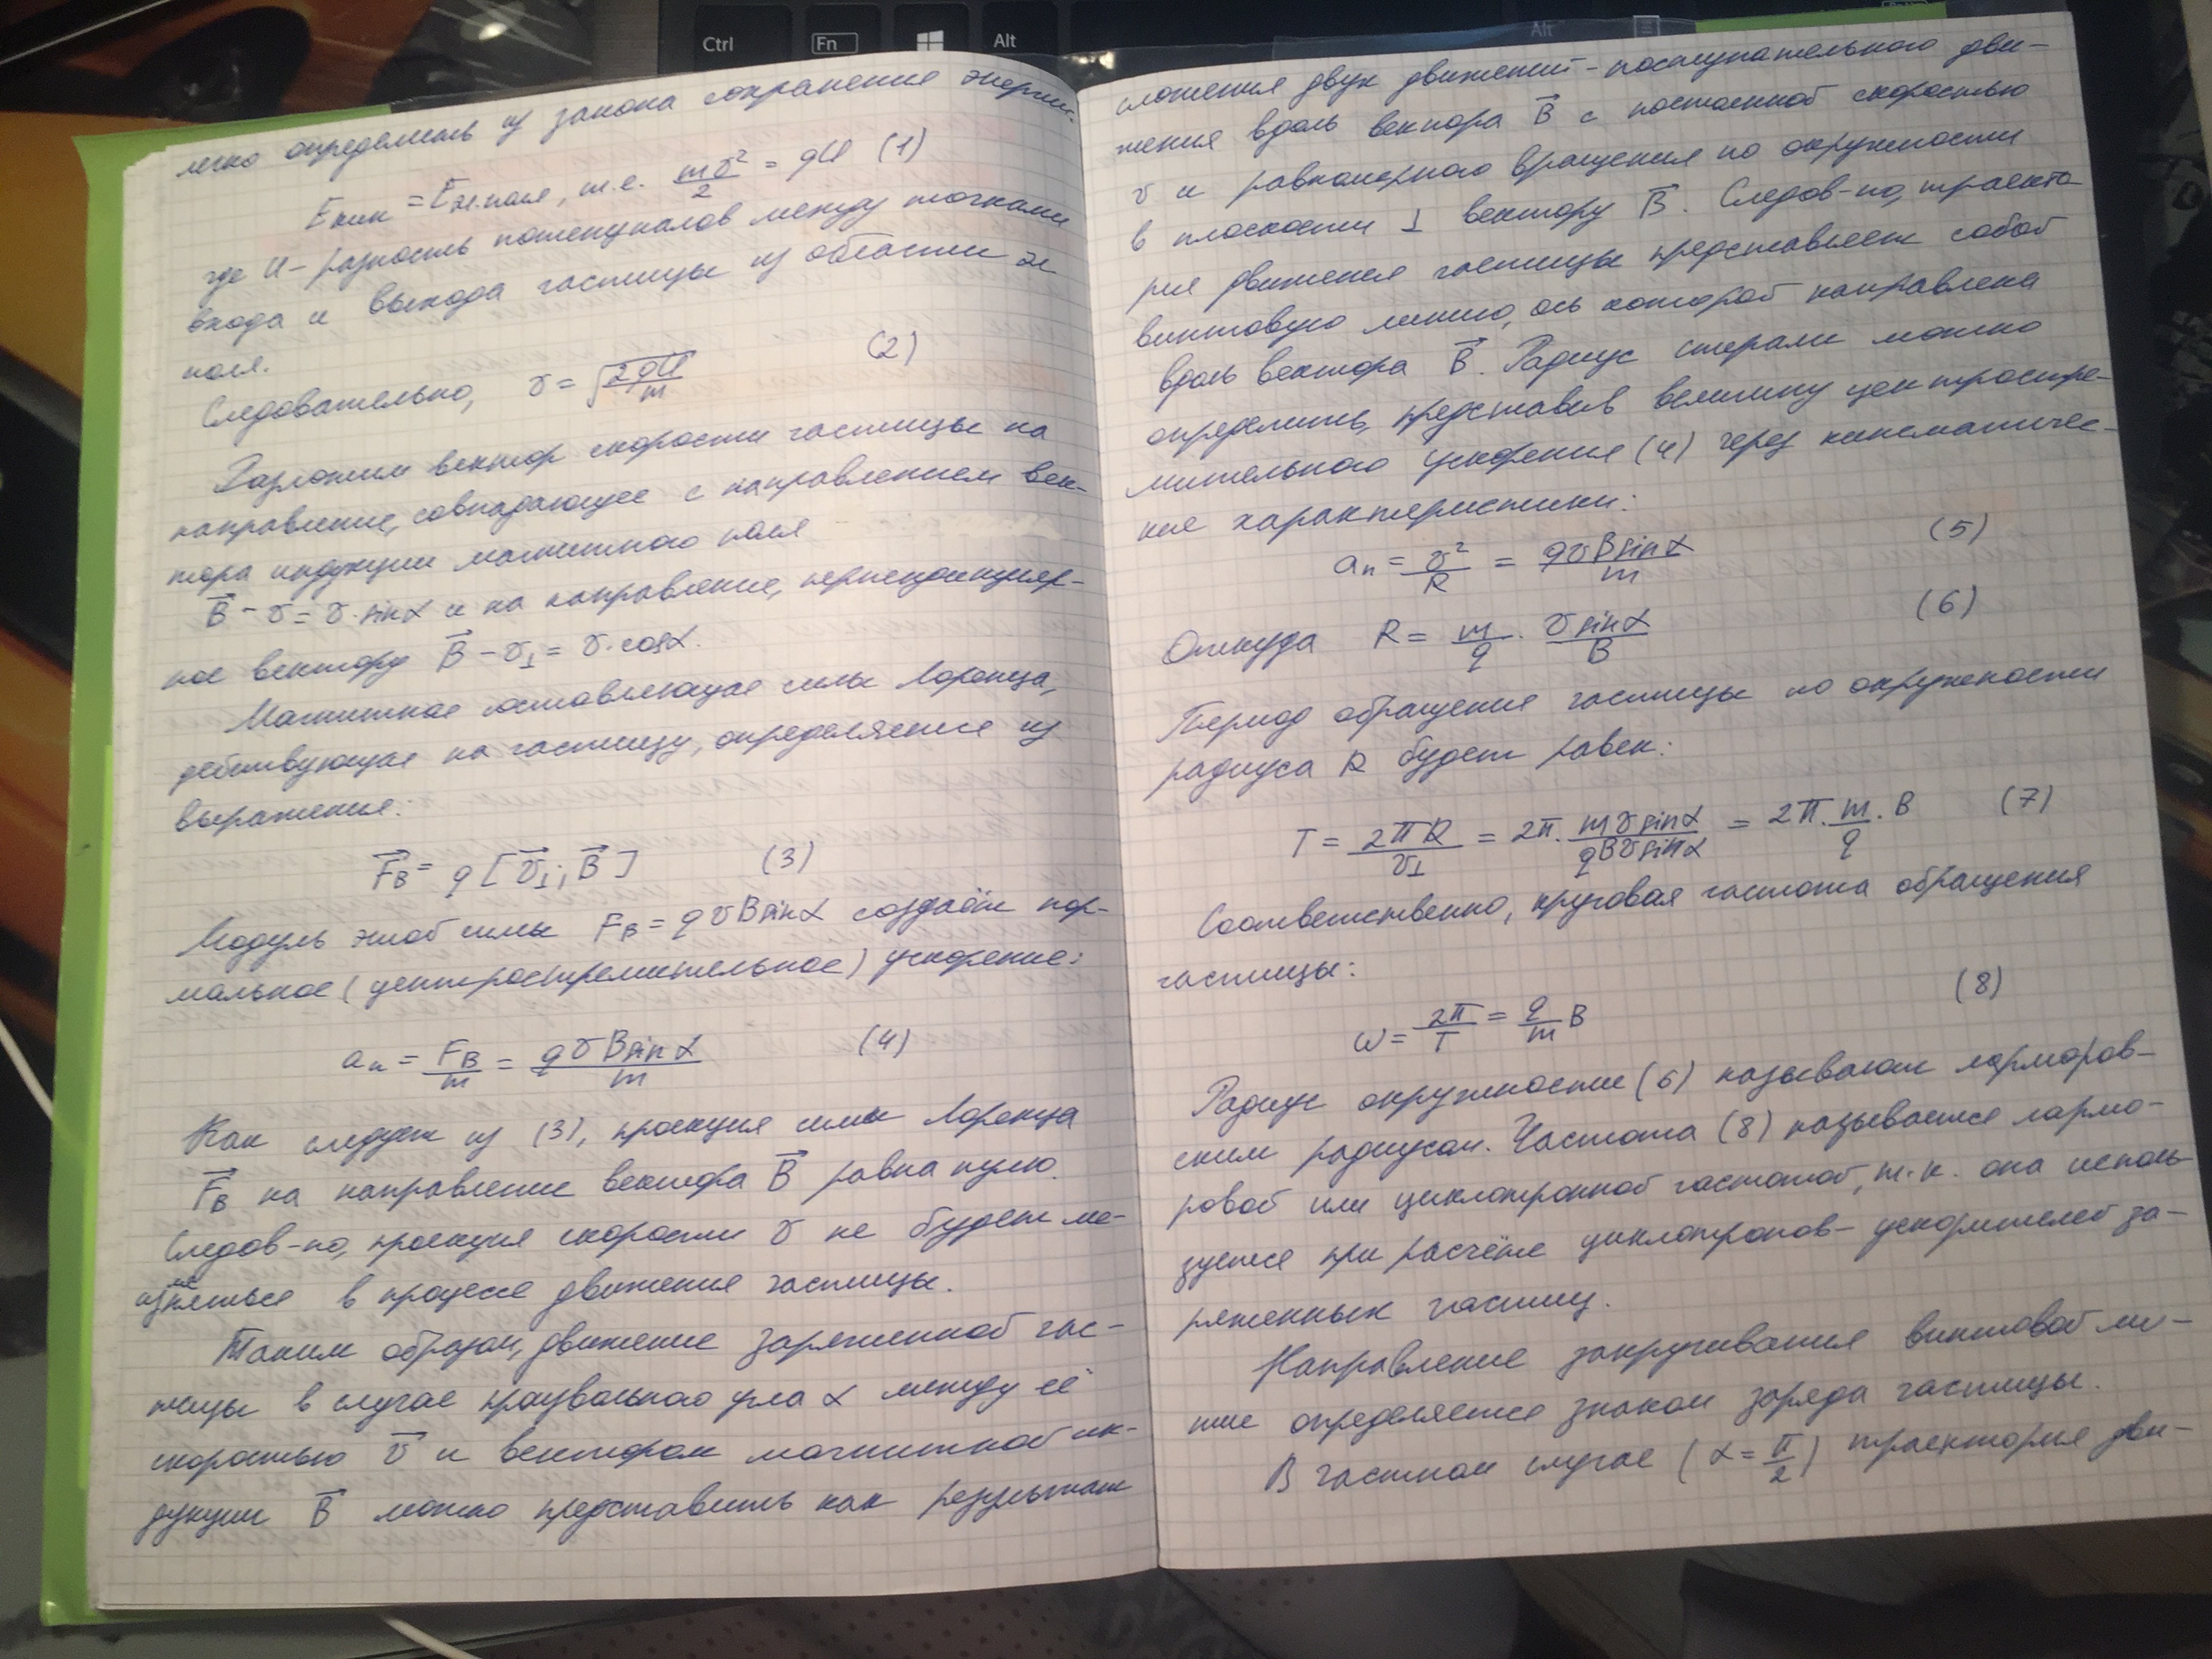 Ctrl
Fn
Alt
Alt
легко определить из закона сохранения энергии:
Eкин = Eэл.поля, т.е. mv²/2 = qU (1)
где U - разность потенциалов между точками
входа и выхода частицы из области эл
поля.
Следовательно, v = √(2qU/m) (2)
Разложим вектор скорости частицы на
направление, совпадающее с направлением век-
тора индукции магнитного поля
B⃗ - v = v·sinα и на направление, перпендикуляр-
ное вектору B⃗ - v⊥ = v·cosα.
Магнитная составляющая силы Лоренца,
действующая на частицу, определяется из
выражения:
F⃗B = q[v⃗⊥; B⃗] (3)
Модуль этой силы FB = qvBsinα создаёт нор-
мальное (центростремительное) ускорение:
an = FB/m = qvBsinα/m (4)
Как следует из (3), проекция силы Лоренца
F⃗B на направление вектора B⃗ равна нулю.
Следов-но, проекция скорости v не будет ме-
изменяться в процессе движения частицы.
Таким образом, движение заряженной час-
тицы в случае произвольного угла α между её
скоростью v⃗ и вектором магнитной ин-
дукции B⃗ можно представить как результат
сложения двух движений - поступательного дви-
жения вдоль вектора B⃗ с постоянной скоростью
v и равномерного вращения по окружности
в плоскости ⊥ вектору B⃗. Следов-но, траекто
рия движения частицы представляет собой
винтовую линию, ось которой направлена
вдоль вектора B⃗. Радиус спирали можно
определить, представив величину центростре-
мительного ускорения (4) через кинематичес-
кие характеристики:
an = v²/R = qvBsinα/m (5)
Откуда R = m/q · vsinα/B (6)
Период обращения частицы по окружности
радиуса R будет равен:
T = 2πR/v⊥ = 2π · mvsinα/qBvsinα = 2π · m/q · B (7)
Соответственно, круговая частота обращения
частицы:
ω = 2π/T = q/m B (8)
Радиус окружности (6) называют ларморов-
ским радиусом. Частота (8) называется лармо-
ровой или циклотронной частотой, т.к. она исполь
зуется при расчёте циклотронов - ускорителей за-
ряженных частиц.
Направление закручивания винтовой ли-
нии определяется знаком заряда частицы.
В частном случае (α = π/2) траектория дви-